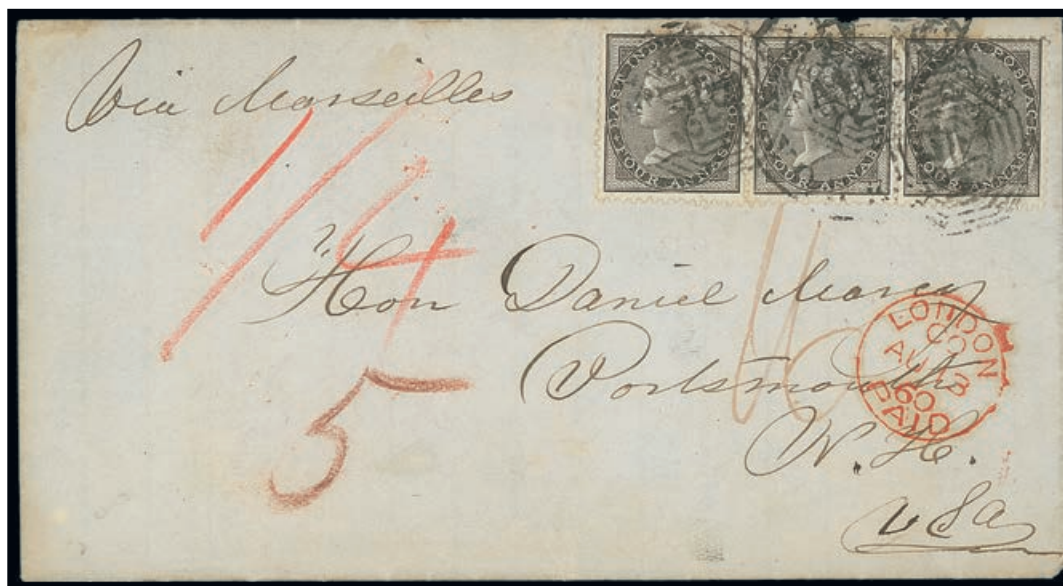 Via Marseilles
EAST INDIA POSTAGE
FOUR ANNAS
EAST INDIA POSTAGE
FOUR ANNAS
EAST INDIA POSTAGE
FOUR ANNAS
1/4
Hon Daniel Marcy
Portsmouth
N. H.
USa
5
LONDON
AU 13
60
PAID